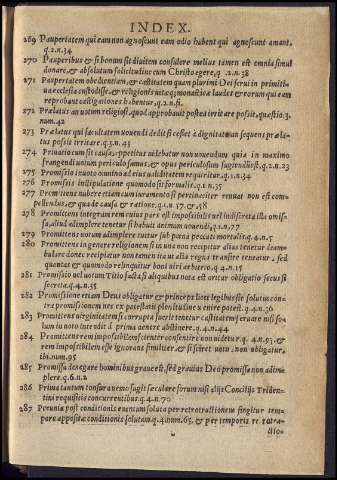 INDEX.
269 Paupertatem qui eam non agnoscunt eam odio habent qui agnoscunt amant.
q.2.n.34
270 Pauperibus & si bonum sit divitem consulere melius tamen est omnia simul
donare, & absolutum solicitudine cum Christo egere, q.2.n.38
271 Paupertatem obedientiam, & castitatem quam plurimi Dei servi in primiti-
va ecclesia custodisse, & religionis vita monastica laudet & eorum qui eam
reprobant castigationes habentur, q.2.n.fi.
272 Prælatus an votum religiosi, quod approbavit postea irritare possit, quæstio.3.
num.42
273 Prælatus qui facultatem vovendi dedit si cesset à dignitate an sequens præla-
tus possit irritare.q.3.n.43
274
frangendi votum periculo sumes, & opus periculosum fugiendum est, q.1.n.23
275 Promissio in voto omnino ad eius validitatem requiritur.q.1.n.34
276 Promissis in stipulatione quomodo sit formalis.q.1.n.35
277 Promittens nubere etiam cum iuramento si pertinaciter renuat non est com-
pellendus, & qua de causa & ratione, q.1.n. 57. & 58
278 Promittens integram rem cuius pars est impossibilis vel indiscreta illa omis-
sa, aliud adimplere tenetur si habuit animum vovendi, q.1.n.77
279 Promittens votum adimplere tenetur sub pœna peccati mortalis.q.4.n.5
280 Promittens in genere religionem si in una non recipitur alias tenetur deam-
bulare donec recipiatur non tamen ita ut alia regna transire teneatur, sed
quantas & quomodo relinquitur boni viri arbitrio, q.4.n.15
281 Promissio vel votum Titio facta si aliquibus nota est oritur obligatio secus si
secreta.q.4.n.55
282 Promissione etiam Deo obligatur & princeps licet legibus sit solutus con-
tra promissionem nec ex potestatis plenitudine venire potest.q.4.n.36
283 Promittens virginitatem si corrupta fuerit tenetur castitatem servare nisi so-
lum in voto intendit à prima venere abstinere.q.4.n.44
284 Promittens rem impossibilem scienter consentire non videtur q. 4.n.93. &
rem impossibilem esse ignorans similiter, & si sciret voto. non obligatur,
ibi.num.95
285 Promissa denegare hominibus grave est, sed gravius Deo promissa non adim-
plere.q.6.n.2
286 Prima tantum tonsura nemo fugit seculare forum nisi alijs Concilij Triden-
tini requisitis concurrentibus.q.4.n.70
287 Pecunia post conditionis eventum soluta per retrotractionem fingitur tem-
pore appositæ conditionis solutam.q.4.num.65. & per temporis retrotra-
ctio-